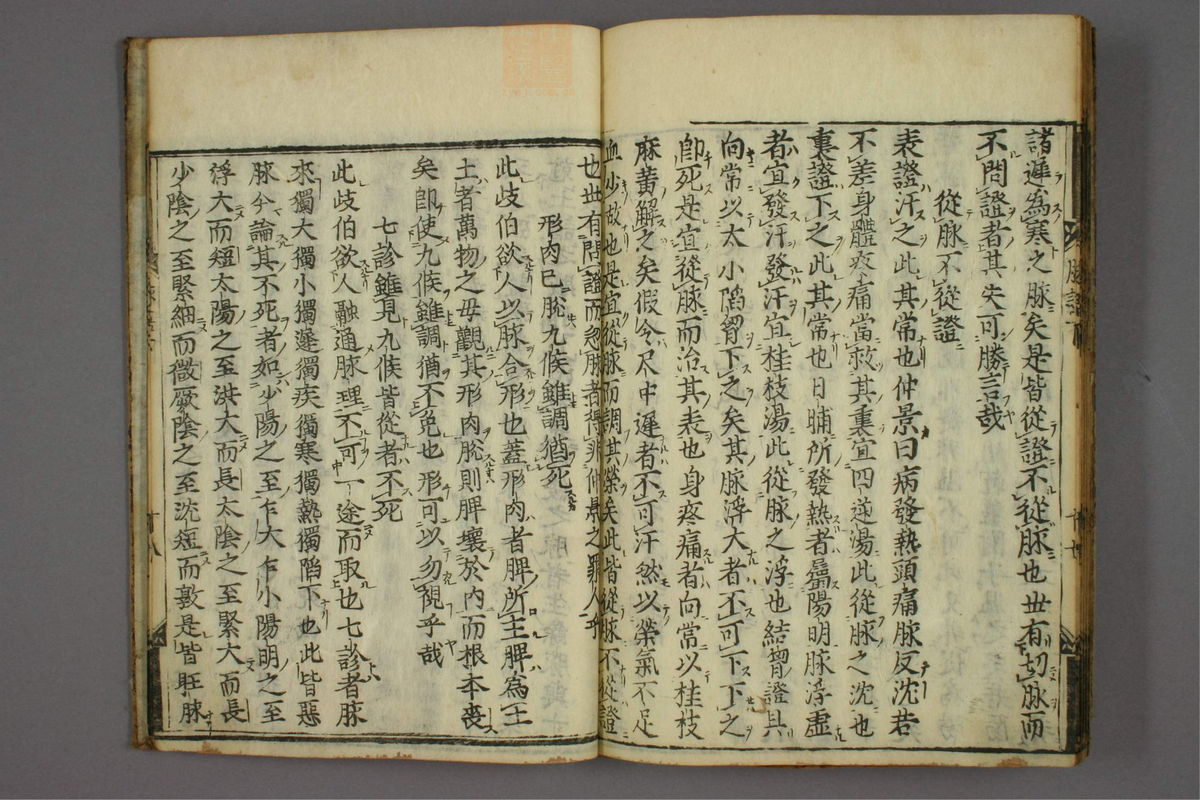 諸遲為寒之脉矣是皆從證不從脉也世有切脉而
不問證者其失可勝言哉
從脉不從證
表證汗之此其常也仲景曰病發熱頭痛脉反沈若
不差身體疼痛當救其裏宜四逆湯此從脉之沈也
裏證下之此其常也日晡所發熱者屬陽明脉浮虛
者宜發汗發汗宜桂枝湯此從脉之浮也結胷證具
向常以大小陷胷下之矣其脉浮大者不可下下之
卽死是宜從脉而治其表也身疼痛者向常以桂枝
麻黃解之矣假令尺中遲者不可汗然以榮氣不足
血少故也是宜從脉而調其榮矣此皆從脉不從證
也世有問證而忽脉者得非仲景之罪人乎
形肉已脫九候雖調猶死
此歧伯欲人以脉合形也蓋形肉者脾所主脾為土
土者萬物之母觀其形肉脫則脾壞於內而根本喪
矣卽使九候雖調猶不免也形可以勿覩乎哉
七診雖見九候皆從者不死
此歧伯欲人融通脉理不可一途而取也七診者脉
來獨大獨小獨遲獨疾獨寒獨熱獨陷下也此皆惡
脉今論其不死者如少陽之至乍大乍小陽明之至
浮大而短太陽之至洪大而長太陰之至緊大而長
少陰之至緊細而微厥陰之至沈短而敦是皆旺脉